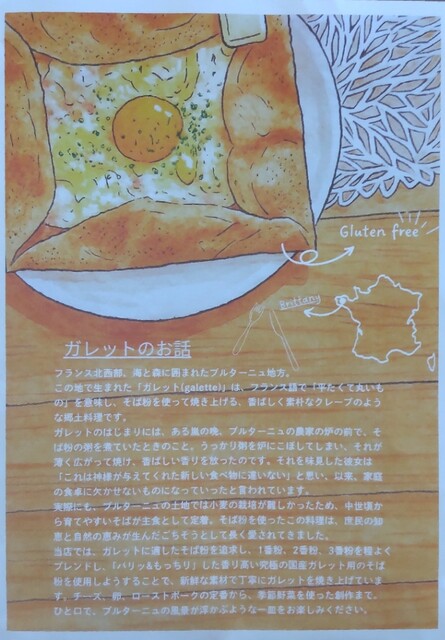 Gluten free
Brittany
ガレットのお話
フランス北西部、海と森に囲まれたブルターニュ地方。
この地で生まれた「ガレット(galette)」は、フランス語で「平たくて丸いも
の」を意味し、そば粉を使って焼き上げる、香ばしく素朴なクレープのよう
な郷土料理です。
ガレットのはじまりには、ある嵐の晩、ブルターニュの農家の炉の前で、そ
ば粉の粥を煮ていたときのこと。うっかり粥を炉にこぼしてしまい、それが
薄く広がって焼け、香ばしい香りを放ったのです。それを味見した彼女は
「これは神様が与えてくれた新しい食べ物に違いない」と思い、以来、家庭
の食卓に欠かせないものになっていったと言われています。
実際にも、ブルターニュの土地では小麦の栽培が難しかったため、中世頃か
ら育てやすいそばが主食として定着。そば粉を使ったこの料理は、庶民の知
恵と自然の恵みが生んだごちそうとして長く愛されてきました。
当店では、ガレットに適したそば粉を追求し、1番粉、2番粉、3番粉を程よく
ブレンドし、「パリッ&もっちり」した香り高い究極の国産ガレット用のそば
粉を使用しようすることで、新鮮な素材で丁寧にガレットを焼き上げていま
す。チーズ、卵、ローストポークの定番から、季節野菜を使った創作まで、
ひと口で、ブルターニュの風景が浮かぶような一皿をお楽しみください。